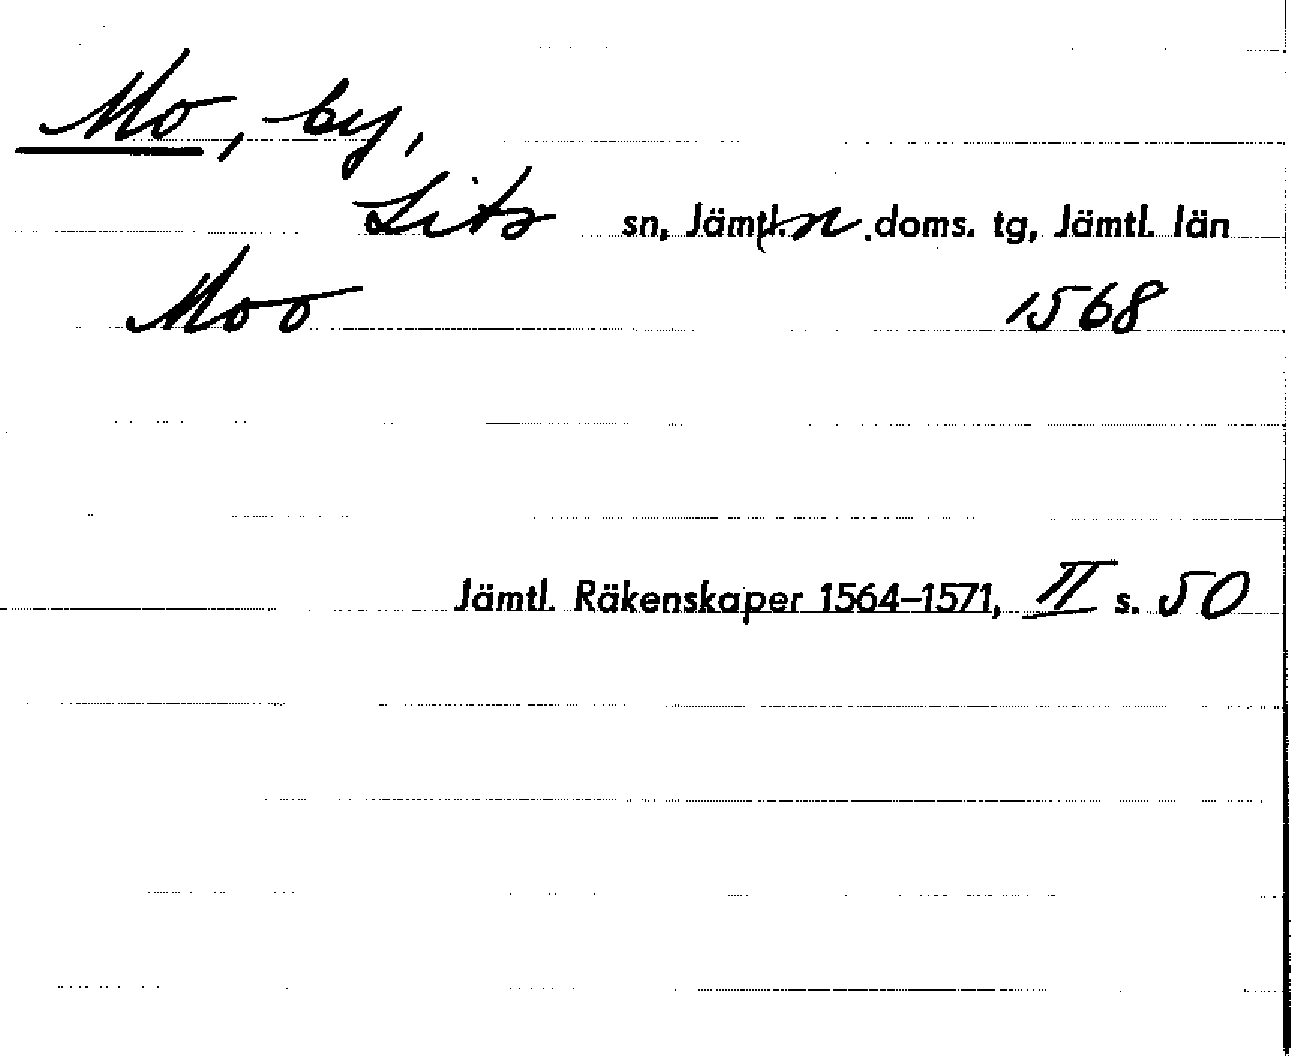 Mo, by,
Lits sn, Jämtl. n. doms. tg, Jämtl. län
Moo 1568
Jämtl. Räkenskaper 1564–1571, II s. 50